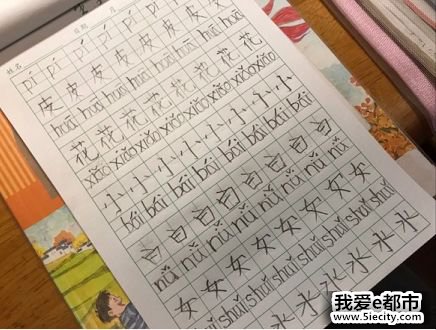 姓名 日期 月
pí pí pí pí pí pí pí pí
皮 皮 皮 皮 皮 皮 皮 皮
huā huā huā huā huā huā huā huā
花 花 花 花 花 花 花 花
xiǎo xiǎo xiǎo xiǎo xiǎo xiǎo xiǎo xiǎo
小 小 小 小 小 小 小 小
bái bái bái bái bái bái bái bái
白 白 白 白 白 白 白 白
nǚ nǚ nǚ nǚ nǚ nǚ nǚ nǚ
女 女 女 女 女 女 女 女
shuǐ shuǐ shuǐ shuǐ shuǐ shuǐ shuǐ shuǐ
水 水 水 水 水
我爱e都市
www.5iecity.com